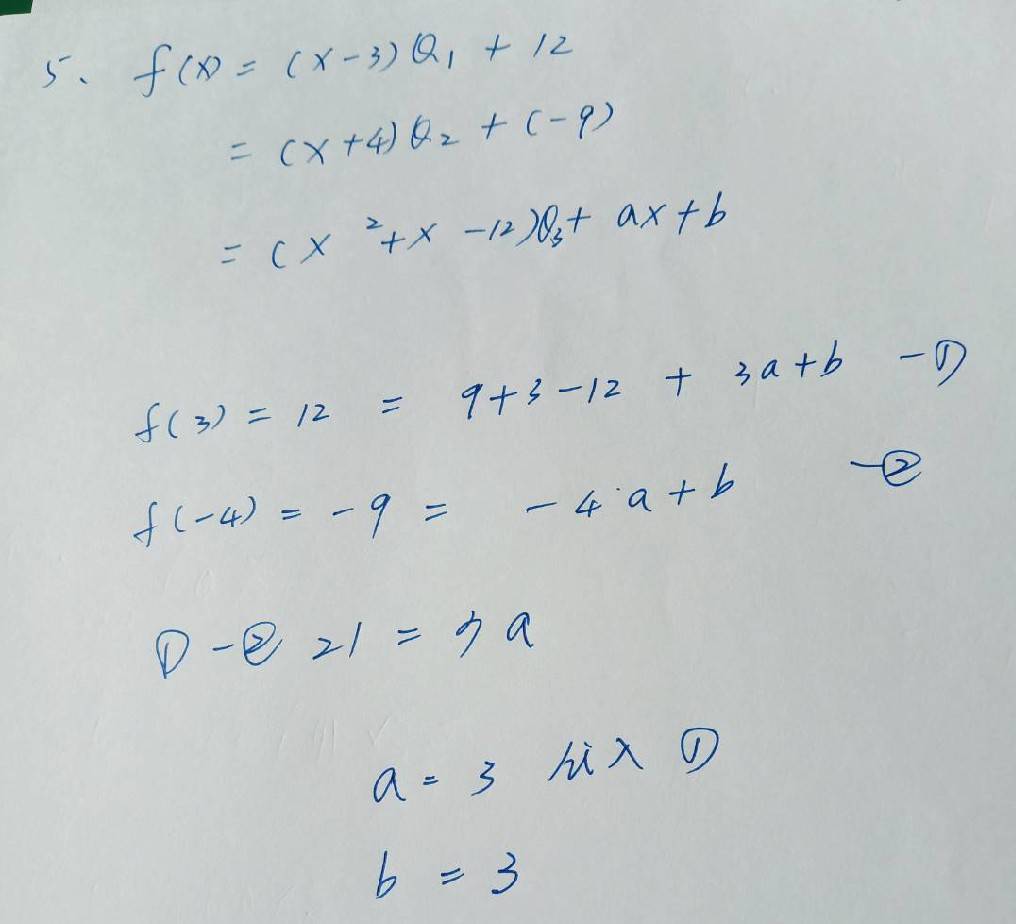 5、 f(x) = (x-3) Q₁ + 12
= (x+4) Q₂ + (-9)
= (x²+x-12)Q₃+ ax+b
f(3) = 12 = 9+3-12 + 3a+b -①
f(-4) = -9 = -4a+b -②
①-② 21 = 7a
a = 3 代入 ①
b = 3